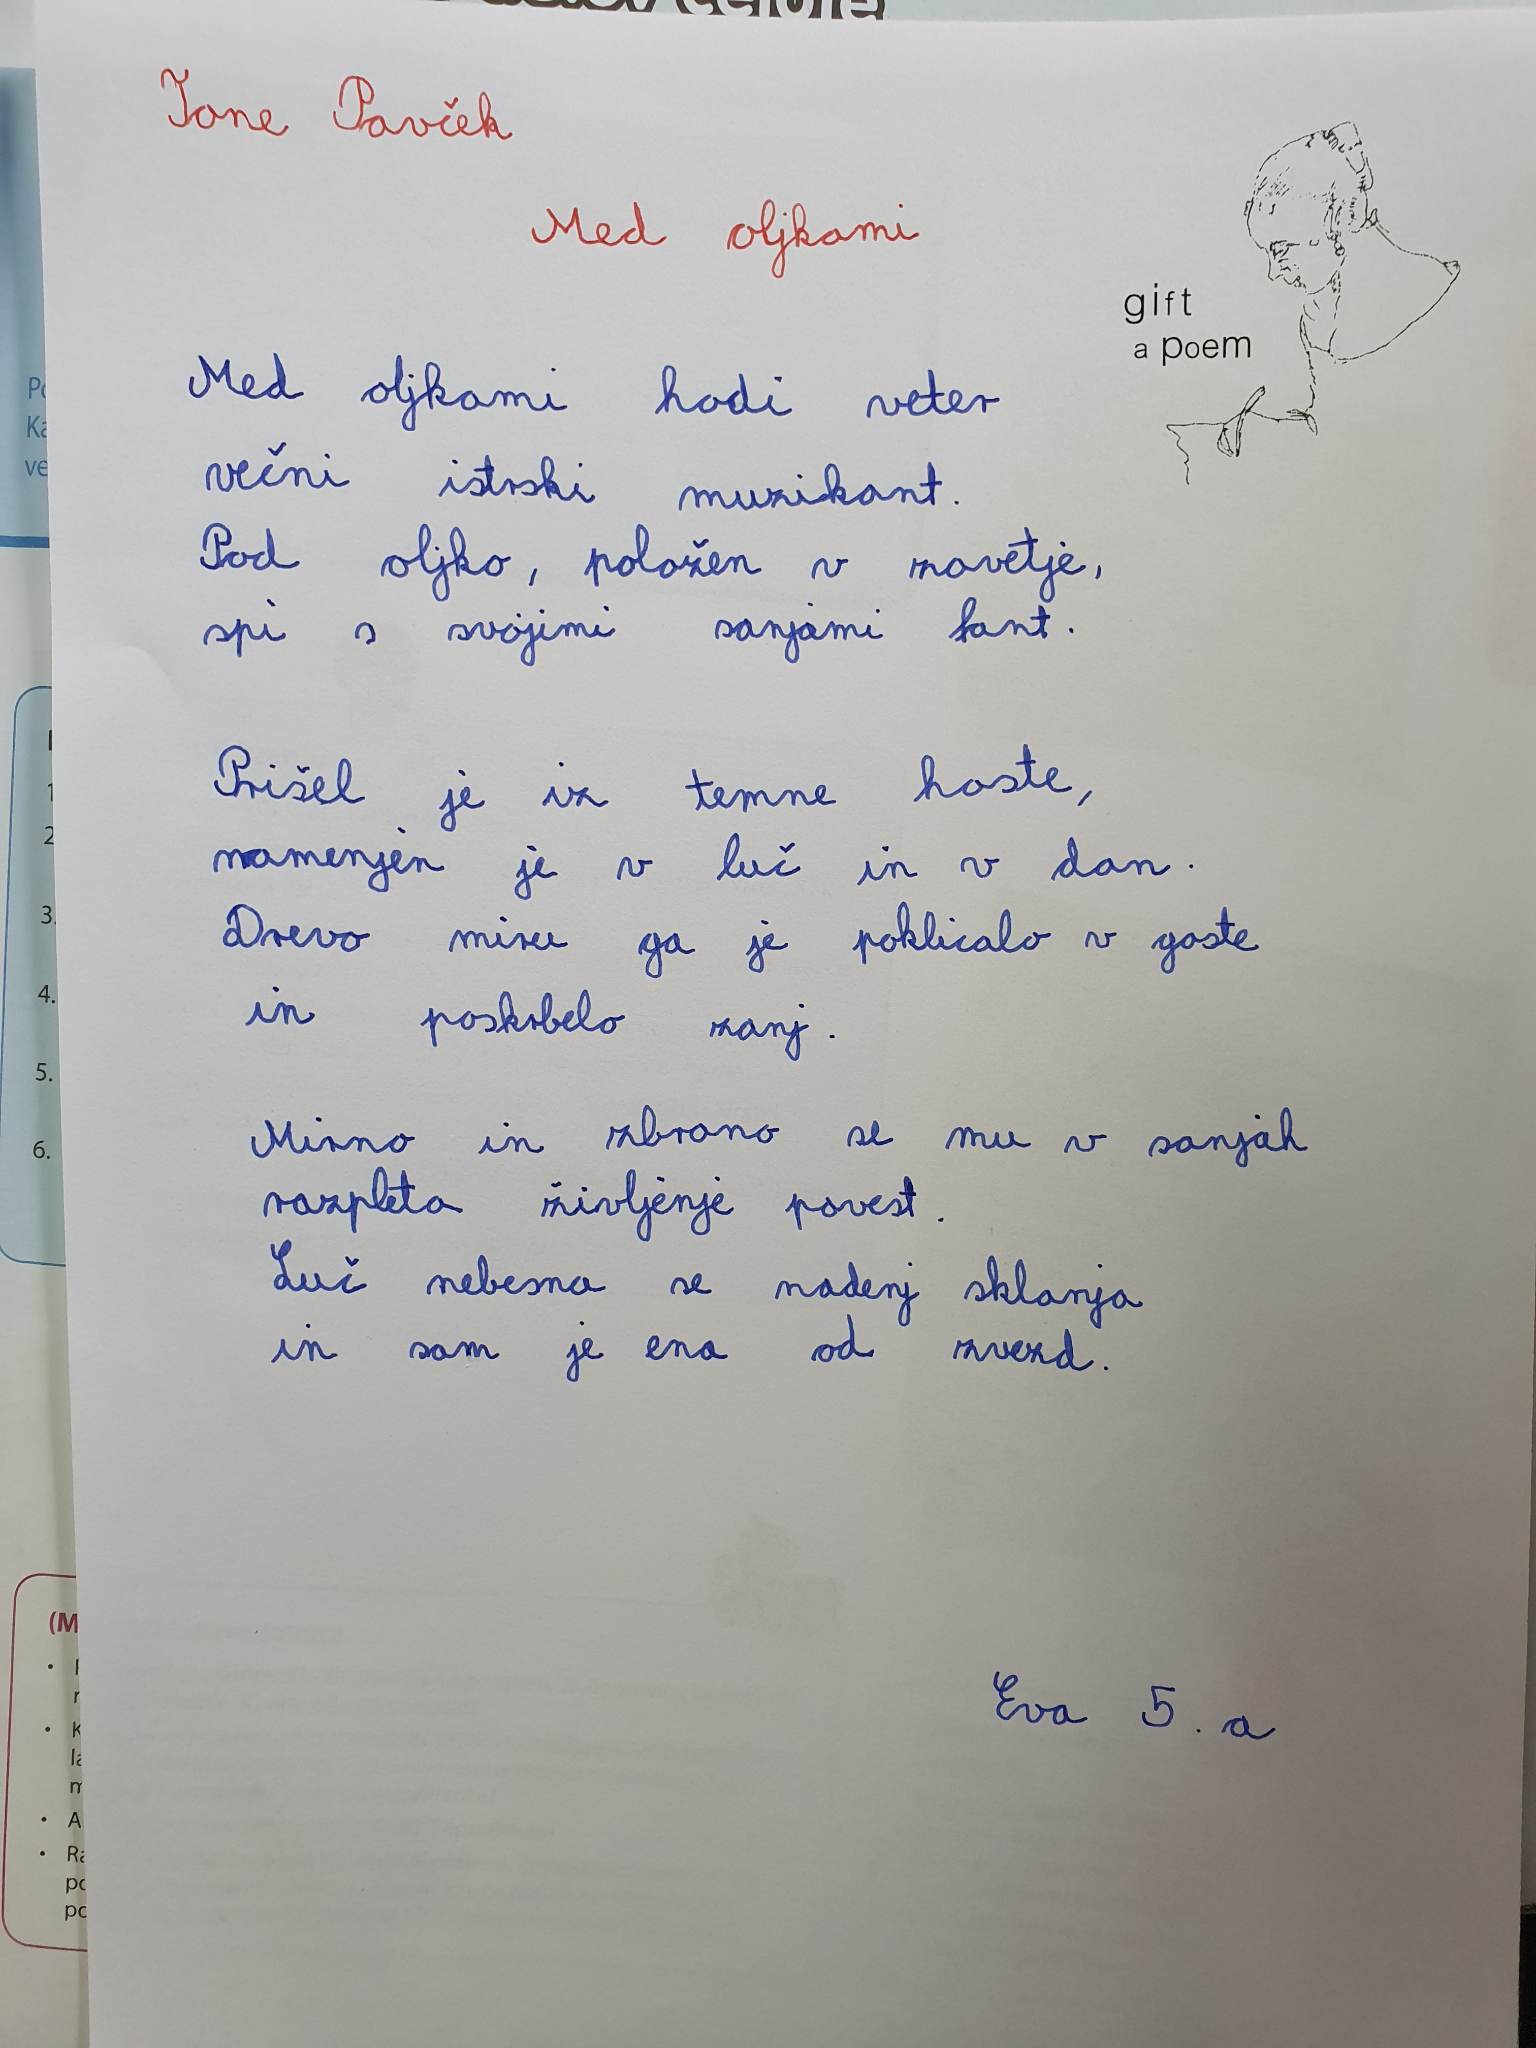 Tone Pavček
Med oljkami
gift
a poem
Med oljkami hodi veter
večni istrski muzikant.
Pod oljko, položen v zavetje,
spi s svojimi sanjami fant.
Prišel je iz temne hoste,
namenjen je v luč in v dan.
Drevo miru ga je poklicalo v goste
in poskrbelo zanj.
Mirno in zbrano se mu v sanjah
razpleta življenje povest.
Luč nebesna se nadenj sklanja
in sam je ena od zvezd.
Eva 5. a
1
2
3.
4.
5.
6.